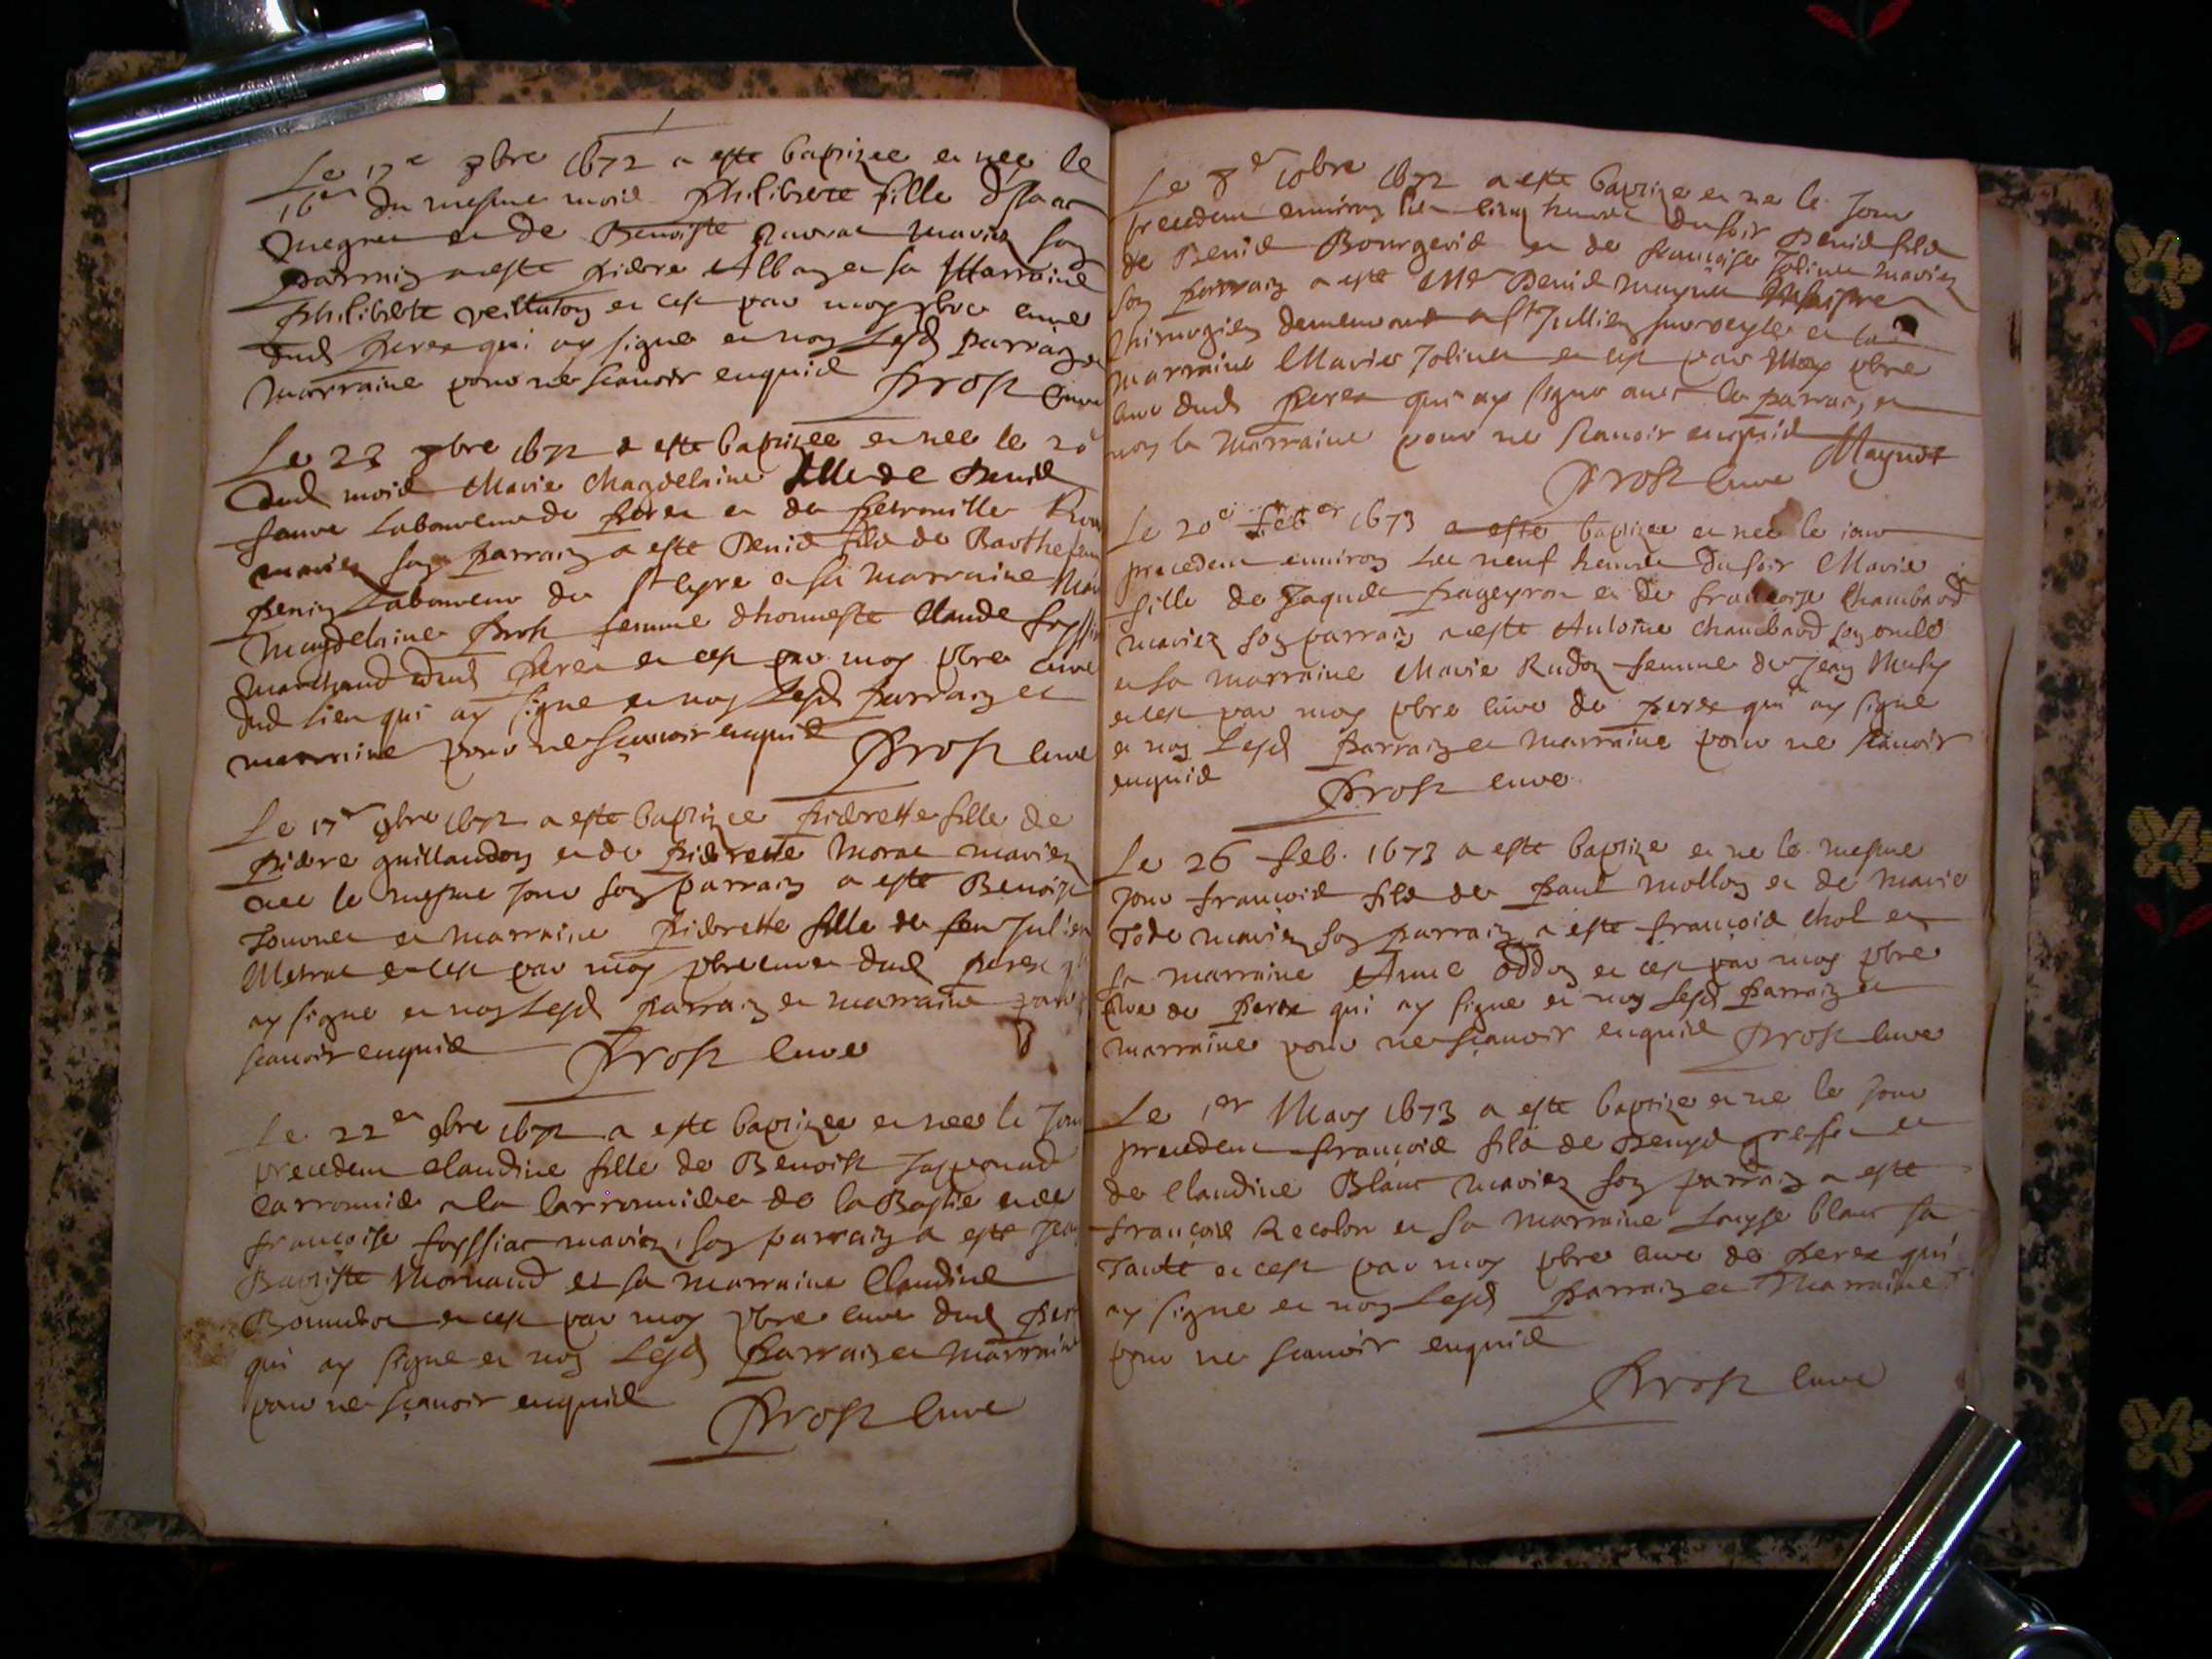 Le 17e 7bre 1672 a este baptizee et nee le
16er du mesme mois philiberte fille d'Isaac
et de Benoiste mariez son
parrain a este pierre Alban et sa Marraine
philiberte et cest par moy pbre curé
dud perex qui ay signe et non lesd parrain et
marraine pour ne scauoir enquis Prost Curé
Le 23 7bre 1672 a este baptizee et nee le 20
dud mois Marie Magdelaine fille de Denis
laboureur de perex et de petronille
mariez son parrain a este Denis fils de Barthelemy
Laboureur de St Cyre et sa marraine Marie
Magdelaine Prost femme d'honneste Claude
marchand dud perex et cest par moy pbre curé
dud lieu qui ay signe et non lesd parrain et
marraine pour ne sçauoir enquis
Prost curé
Le 17e 9bre 1672 a este baptizee pierrette fille de
pierre guillaudon et de pierrette Morat mariez
nee le mesme jour son parrain a este Benoist
et marraine pierrette fille de feu Julien
Metrat et cest par moy pbre curé dud perex
ay signe et non lesd parrain et marraine pour
scauoir enquis Prost curé
Le 22e 9bre 1672 a este baptizee et nee le Jour
precedent claudine fille de Benoist
a la de la Bastie et de
françoise mariez, son parrain a este Jean
Baptiste Mornand et sa marraine Claudine
et cest par moy pbre curé dud
qui ay signe et non Lesd parrain et Marraine
pour ne sçauoir enquis
Prost curé
Le 8e 10bre 1672 a este baptize et ne le Jour
precedent enuiron les cinq heures du soir Denis fils
de Denis Bourgeois et de francoise Joliuet mariez
son parrain a este Me Denis
chirurgien demeurant a St Jullien sur veyle et sa
marraine Marie Joliuet et cest par Moy pbre
curé dud perex qui ay signe auec le parrain, et
non la Marraine pour ne scauoir enquis
Prost curé
Le 20e feber 1673 a este baptizee et nee le iour
precedent enuiron les neuf heures du soir Marie
fille de Jaques et de francoise Chambard
mariez son parrain a este Antoine Chambard son oncle
et sa marraine Marie femme de Jean
et cest par moy pbre curé de perex qui ay signe
et non Lesd parrain et marraine pour ne scauoir
enquis Prost curé
Le 26 feb. 1673 a este baptize et ne le mesme
Jour françois fils de paul mollon et de marie
mariez son parrain a este françois chol et
sa marraine Anne et cest par moy pbre
curé de perex qui ay signe et non lesd parrain et
marraine pour ne sçauoir enquis Prost curé
Le 1er Mars 1673 a este baptize et ne le Jour
precedent françois fils de Denys et
de Claudine Blanc mariez son parrain a este
françois Recolon et sa marraine Louyse blanc sa
Tante et cest par moy pbre curé de perex qui
ay signe et non Lesd parrain et Marraine
pour ne scauoir enquis
Prost curé